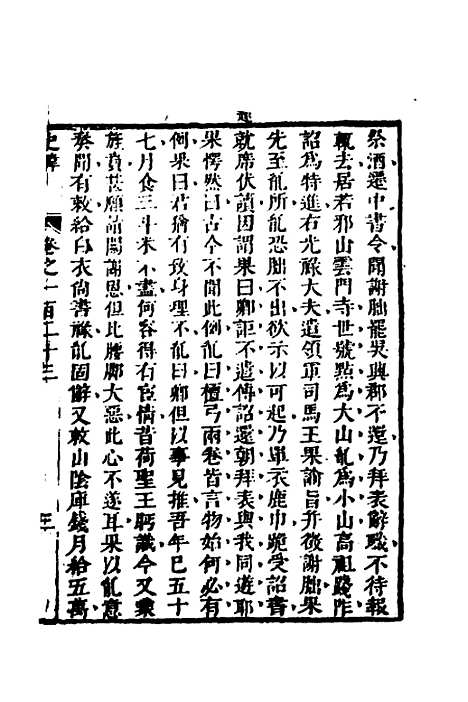 祭酒遷中書令聞謝朏罷吳興郡不還乃拜表解職不待報
輒去居若邪山雲門寺世號點爲大山胤爲小山高祖踐阼
詔爲特進右光祿大夫遣領軍司馬王果諭旨并徵謝朏果
先至胤所胤恐朏不出欲示以可起乃單衣鹿巾跪受詔書
就席伏讀因謂果曰卿詎不遣傳詔還朝拜表與我同遊耶
果愕然曰古今不聞此例胤曰檀弓兩卷皆言物始何必有
例果曰君猶有致身理不胤曰卿但以事見推吾年已五十
七月食三斗米不盡何容得有宦情昔荷聖王眄識今又蒙
旌賁甚願詣闕謝恩但比腰腳大惡此心不遂耳果以胤意
奏聞有敕給白衣尚書祿胤固辭又敕山陰庫錢月給五萬
史
卷之一百二十三